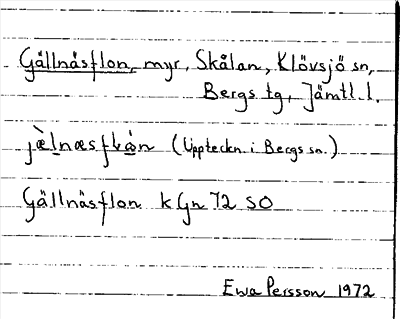 Gällnäsflon, myr, Skålan, Klövsjö sn,
Bergs tg, Jämtl. l.
(Uppteckn. i Bergs sn.)
Gällnäsflon k Gn 72 SO
Ewa Persson 1972